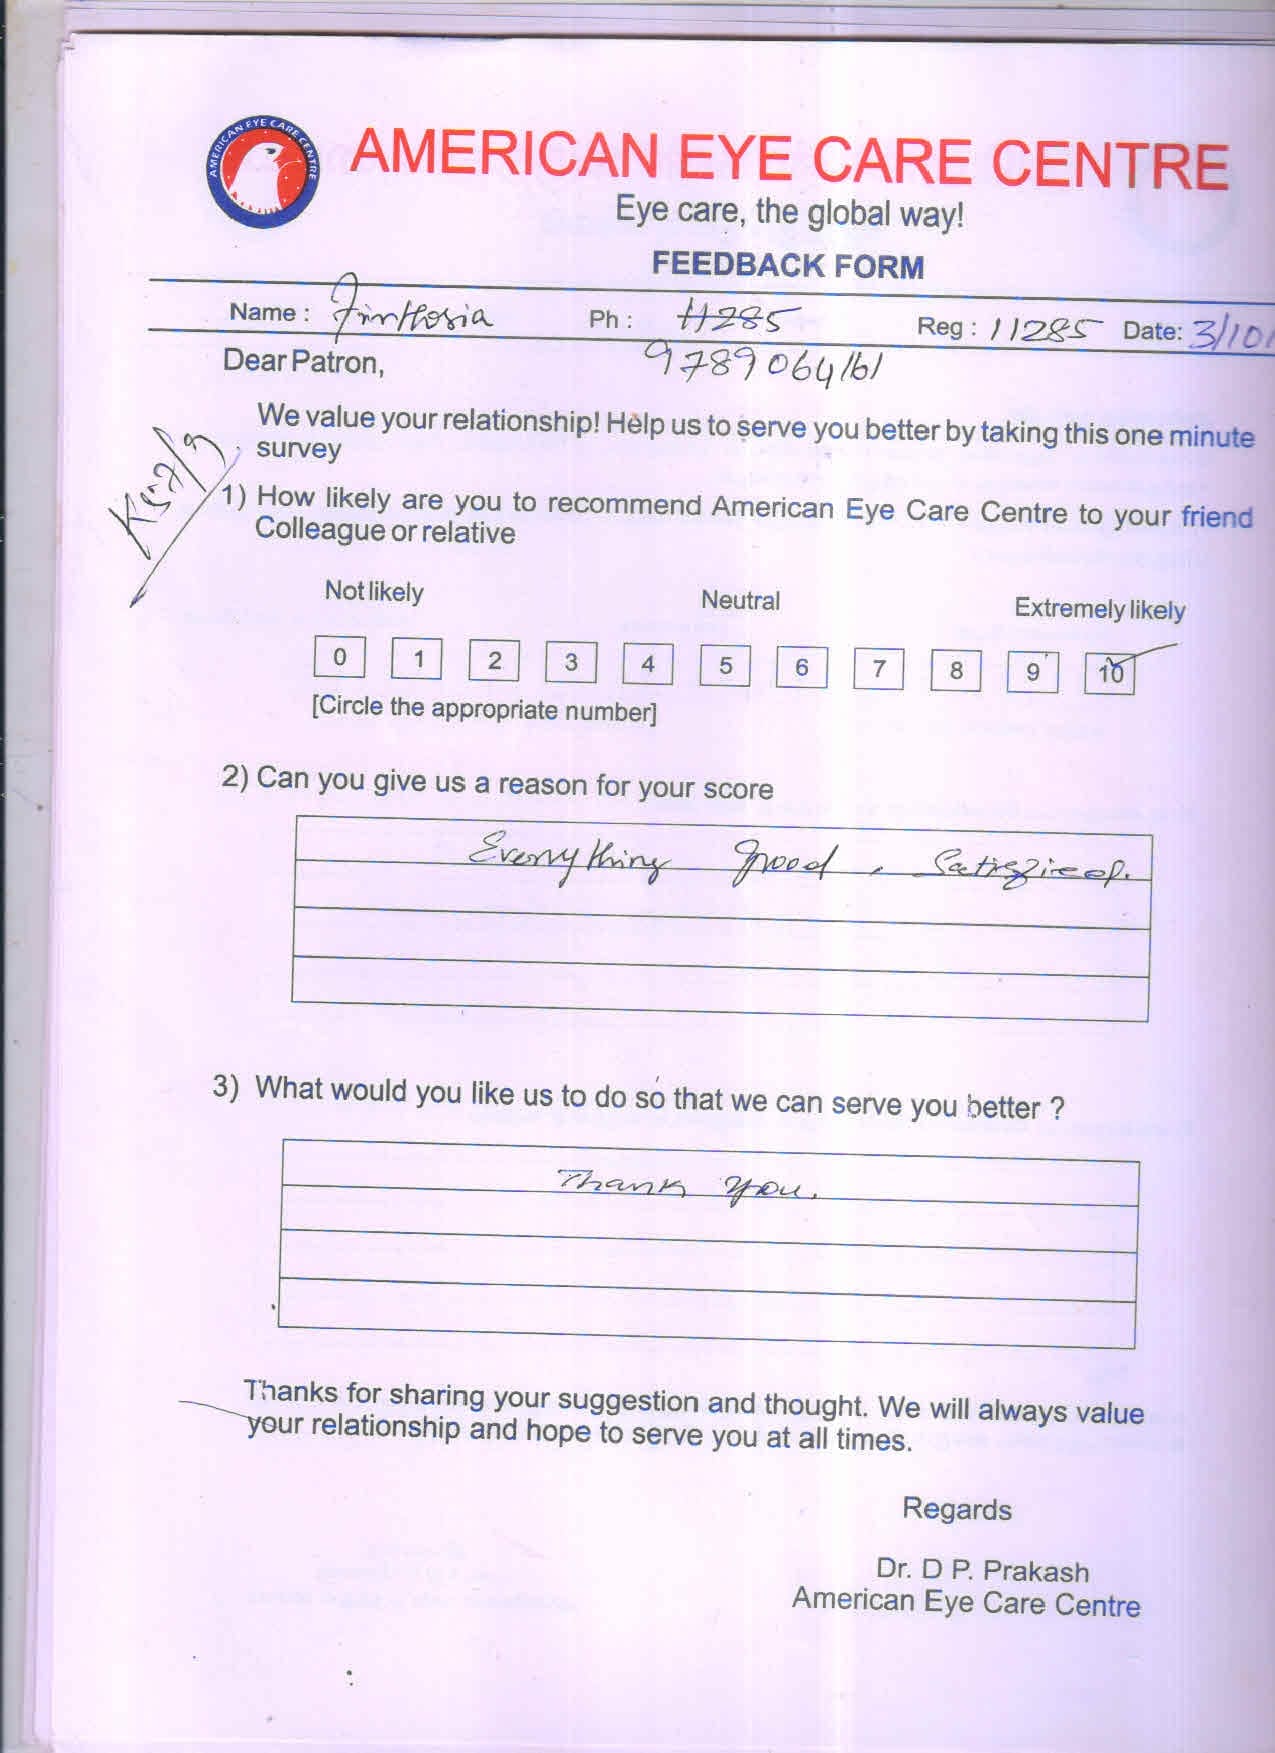 AMERICAN EYE CARE CENTRE
AMERICAN EYE CARE CENTRE
Eye care, the global way!
FEEDBACK FORM
Name : Ph : 11285 Reg : 11285 Date: 3/10/
9789064161
Dear Patron,
We value your relationship! Help us to serve you better by taking this one minute
survey
1) How likely are you to recommend American Eye Care Centre to your friend
Colleague or relative
Not likely Neutral Extremely likely
0 1 2 3 4 5 6 7 8 9 10
[Circle the appropriate number]
2) Can you give us a reason for your score
Everything good, Satisfied.
3) What would you like us to do so that we can serve you better ?
Thank you.
Thanks for sharing your suggestion and thought. We will always value
your relationship and hope to serve you at all times.
Regards
Dr. D P. Prakash
American Eye Care Centre